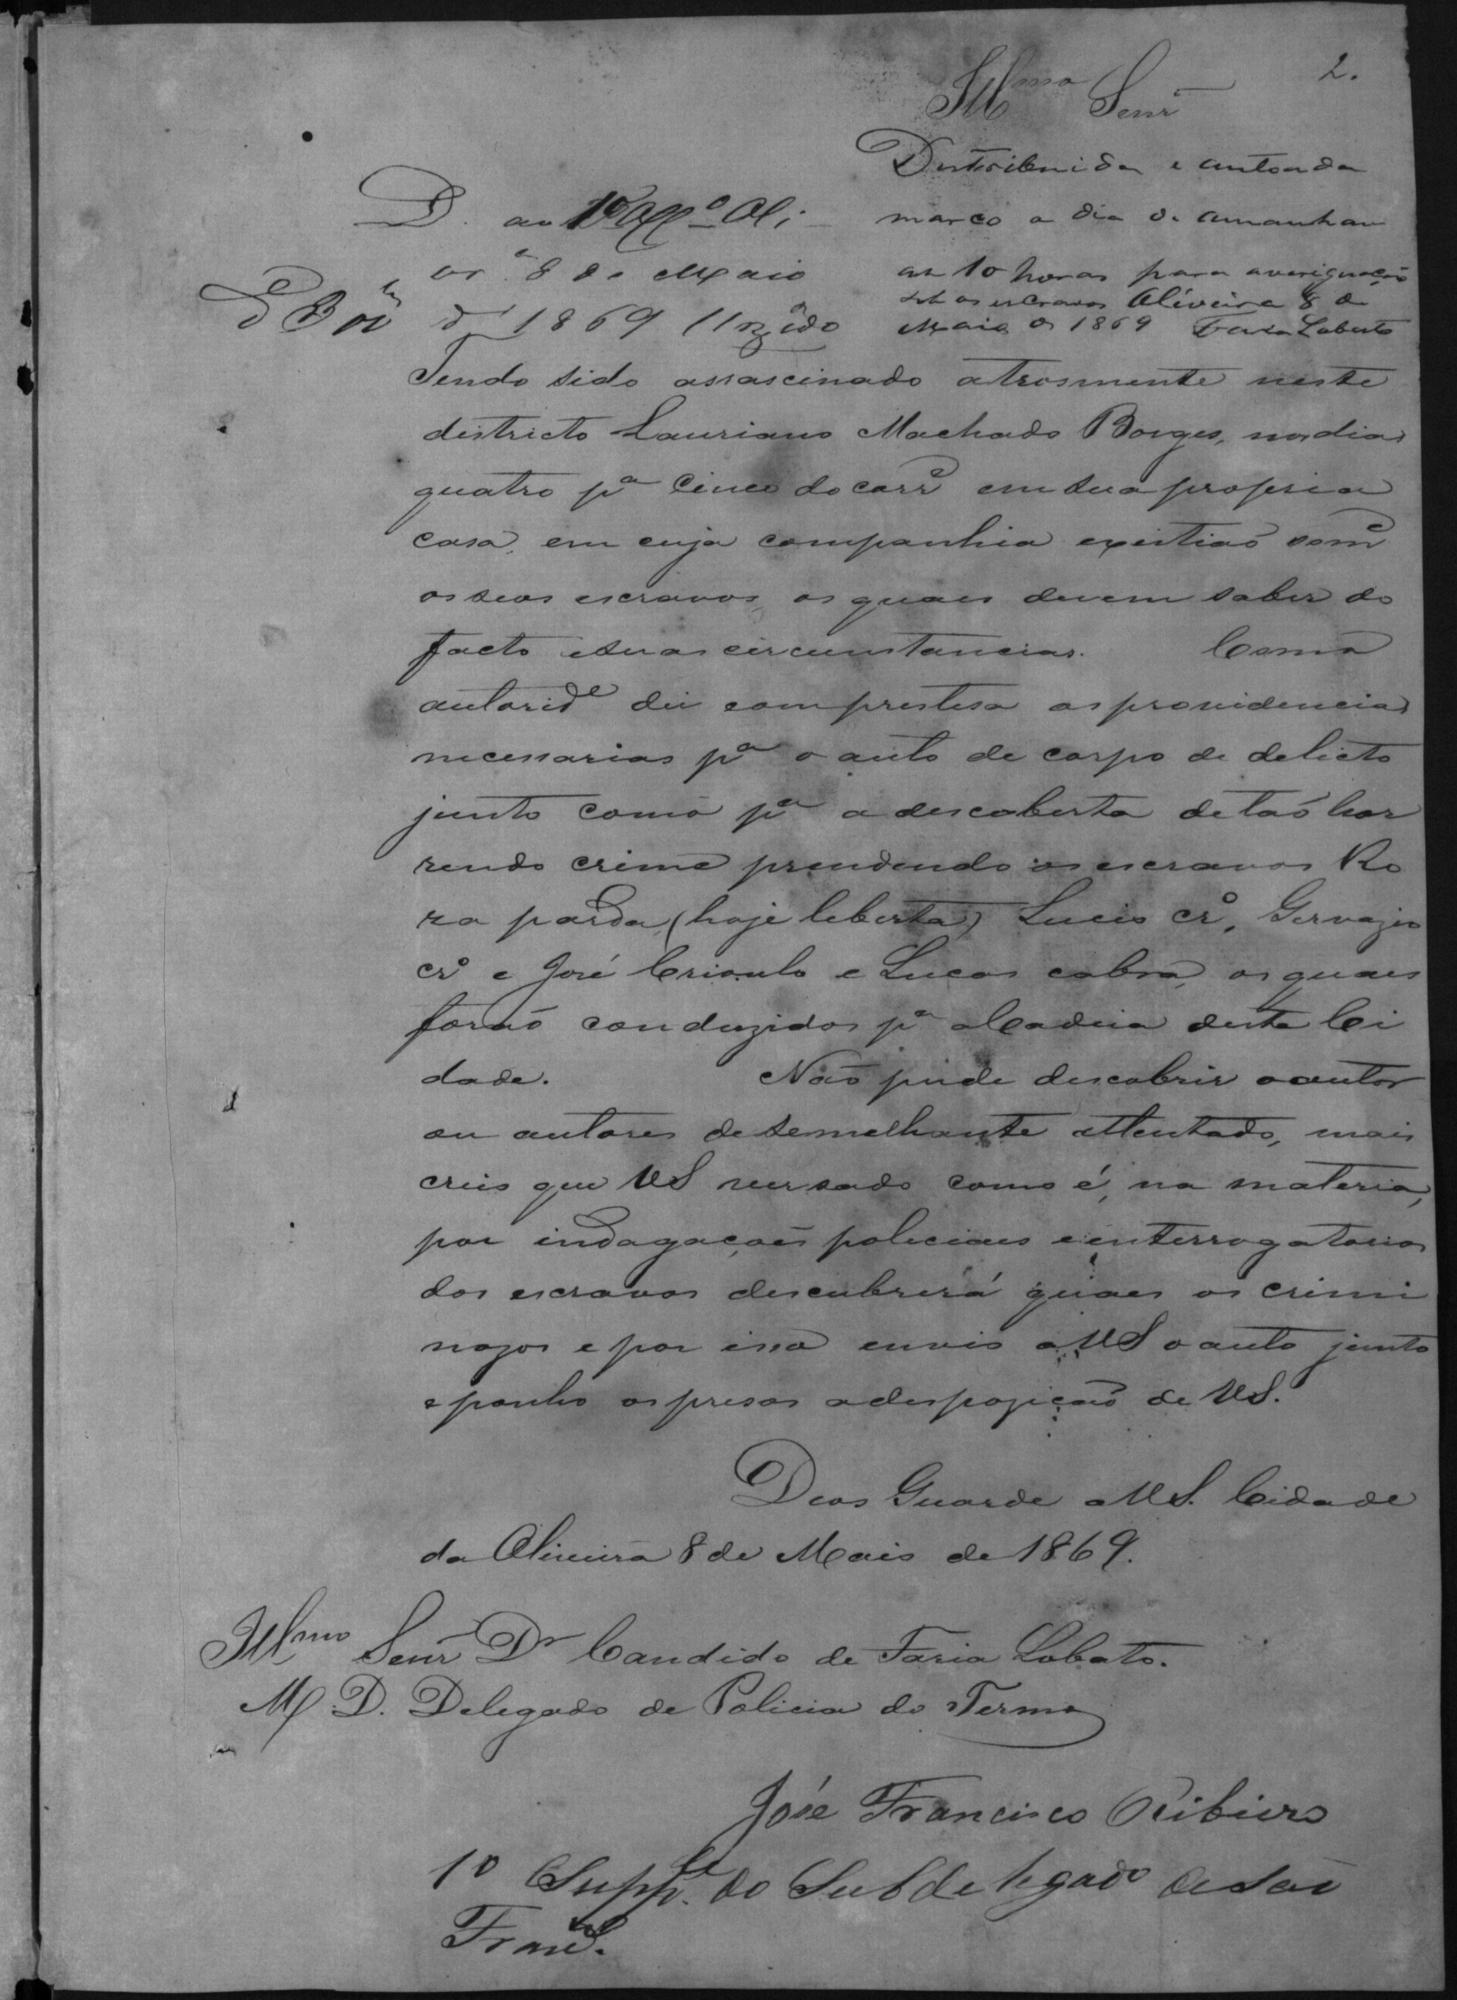 2.
Illmo Senr
Destribuida e autoada
marco o dia de amanhan
as 10 horas para averiguação
os escravos Oliveira 8 de
Maio de 1869 Faria Lobato
D. ao 1º Oli
vrª 8 de Maio
de 1869
Tendo sido assascinado atrosmente neste
districto Lauriano Machado Borges, no dia
quatro pª cinco do corre em sua propria
casa, em cuja companhia existiaõ some
os seos escravos, os quaes devem saber do
facto e suas circumstancias. Como
autoride dei com prestesa as providencias
necessarias pª o auto de corpo de delicto
junto como pª a descoberta de taõ hor
rendo crime prendendo os escravos Ro
za parda, (hoje liberta) Lucio crº, Gervazio
crº e José Crioulo e Lucas cabra, os quaes
foraõ conduzidos pª a Cadeia desta Ci
dade. Não pude descobrir o autor
ou autores de semelhante attentado, mais
creio que VS versado como é, na materia,
por indagaçoẽs policiaes e interrogatorios
dos escravos descubrirá quaes os crimi
nozos e por isso envio a VS o auto junto
e ponho os presos a despoziçaõ de VS.
Deos Guarde a VS. Cidade
da Oliveira 8 de Maio de 1869.
Illmo Senr Dr Candido de Faria Lobato.
M. D. Delegado de Policia do Termo
José Francisco Ribeiro
1º Suppe. do Subdelegado de São
Franco.